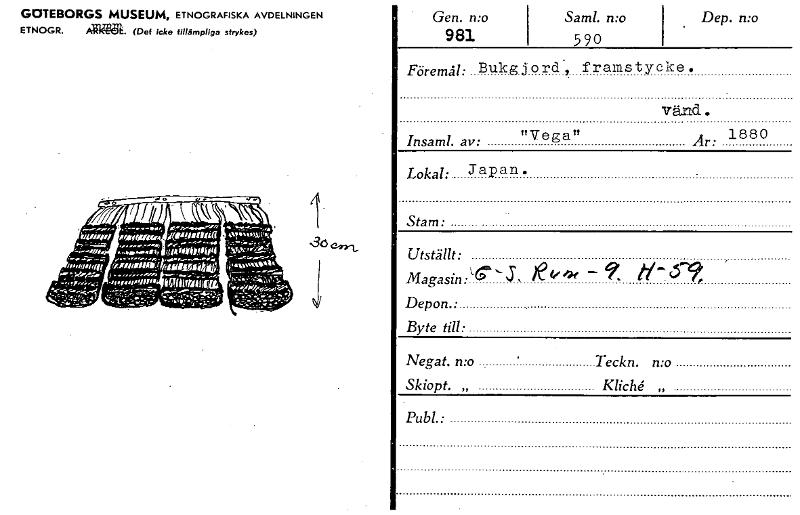 GÖTEBORGS MUSEUM, ETNOGRAFISKA AVDELNINGEN
ETNOGR. ARKEOL. (Det icke tillämpliga strykes)
30 cm
Gen. n:o Saml. n:o Dep. n:o
981 590
Föremål: Bukgjord, framstycke.
vänd.
Insaml. av: "Vega" År: 1880
Lokal: Japan.
Stam:
Utställt:
Magasin: G-J. Rum-9. H-59.
Depon.:
Byte till:
Negat. n:o Teckn. n:o
Skiopt. „ Kliché „
Publ.: